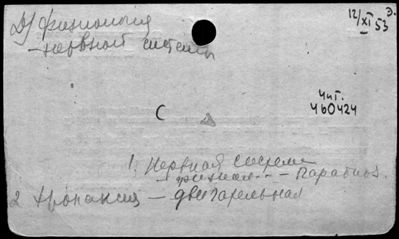 Д) физиология
12/XI 53 Э.
– нервной системы
С
Чит.
460424
1. Нервная система
физиол. – – Парабиоз.
2 Хронаксия – двигательная